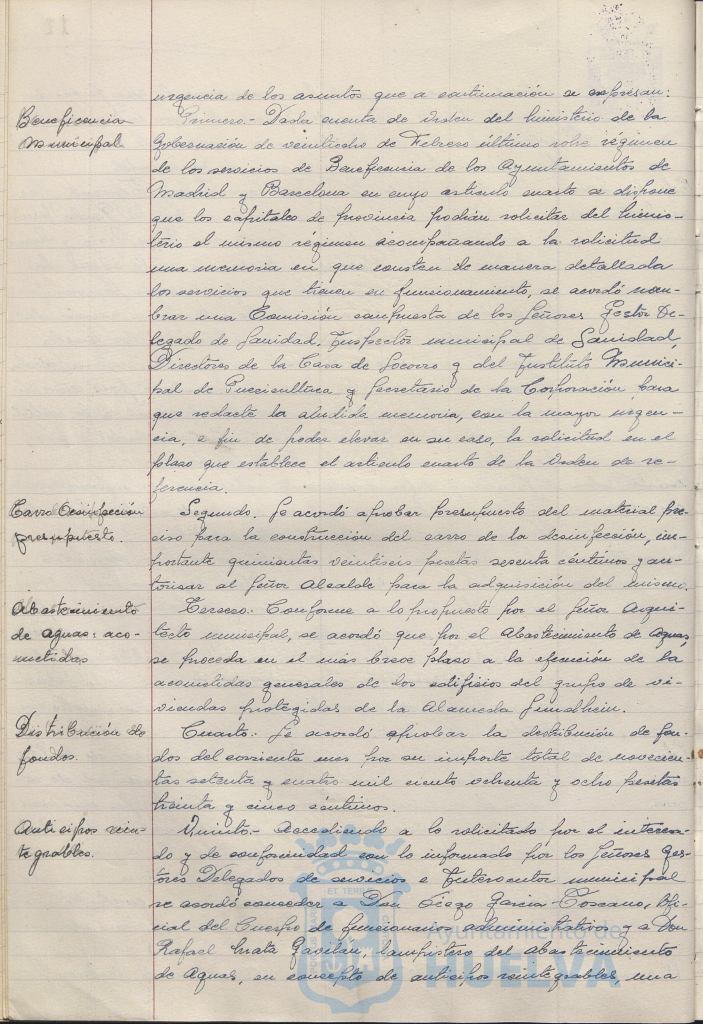 urgencia de los asuntos que a continuación se expresan:
Beneficencia
Municipal
Primero.- Dada cuenta de Orden del Ministerio de la
Gobernación de veintiocho de Febrero último sobre régimen
de los servicios de Beneficencia de los Ayuntamientos de
Madrid y Barcelona en cuyo artículo cuarto se dispone
que las capitales de provincia podrán solicitar del Minis-
terio el mismo régimen acompañando a la solicitud
una memoria en que consten de manera detallada
los servicios que tienen en funcionamiento, se acordó nom-
brar una Comisión compuesta de los Señores Gestor De-
legado de Sanidad, Inspector municipal de Sanidad,
Directores de la Casa de Socorro y del Instituto Munici-
pal de Puericultura y Secretario de la Corporación, para
que redacte la aludida memoria, con la mayor urgen-
cia, a fin de poder elevar en su caso, la solicitud en el
plazo que establece el artículo cuarto de la Orden de re-
ferencia.
Carro desinfección
presupuesto.
Segundo. Se acordó aprobar presupuesto del material pre-
ciso para la construcción del carro de la desinfección, im-
portante quinientas veintiseis pesetas sesenta céntimos y au-
torisar al Señor Alcalde para la adquisición del mismo.
Abastecimiento
de aguas: aco-
metidas
Tercero. Conforme a lo propuesto por el Señor Arqui-
tecto municipal, se acordó que por el Abastecimiento de Aguas,
se proceda en el más breve plazo a la ejecución de la
acometidas generales de los edificios del grupo de vi-
viendas protegidas de la Alameda Sundheim.
Distribución de
fondos.
Cuarto. Se acordó aprobar la distribución de fon-
dos del corriente mes por su importe total de novecien-
tas setenta y cuatro mil ciento ochenta y ocho pesetas
treinta y cinco céntimos.
Anticipos rein-
tegrables.
Quinto.- Accediendo a lo solicitado por el interesa-
do y de conformidad con lo informado por los Señores Ges-
tores Delegados de servicios e Interventor municipal
se acordó conceder a Don Diego García Toscano, Ofi-
cial del Cuerpo de funcionarios administrativos y a Don
Rafael Mata Gavilán, lampistero del abastecimiento
de Aguas, en concepto de anticipos reintegrables, una
Ayuntamiento de
HUELVA